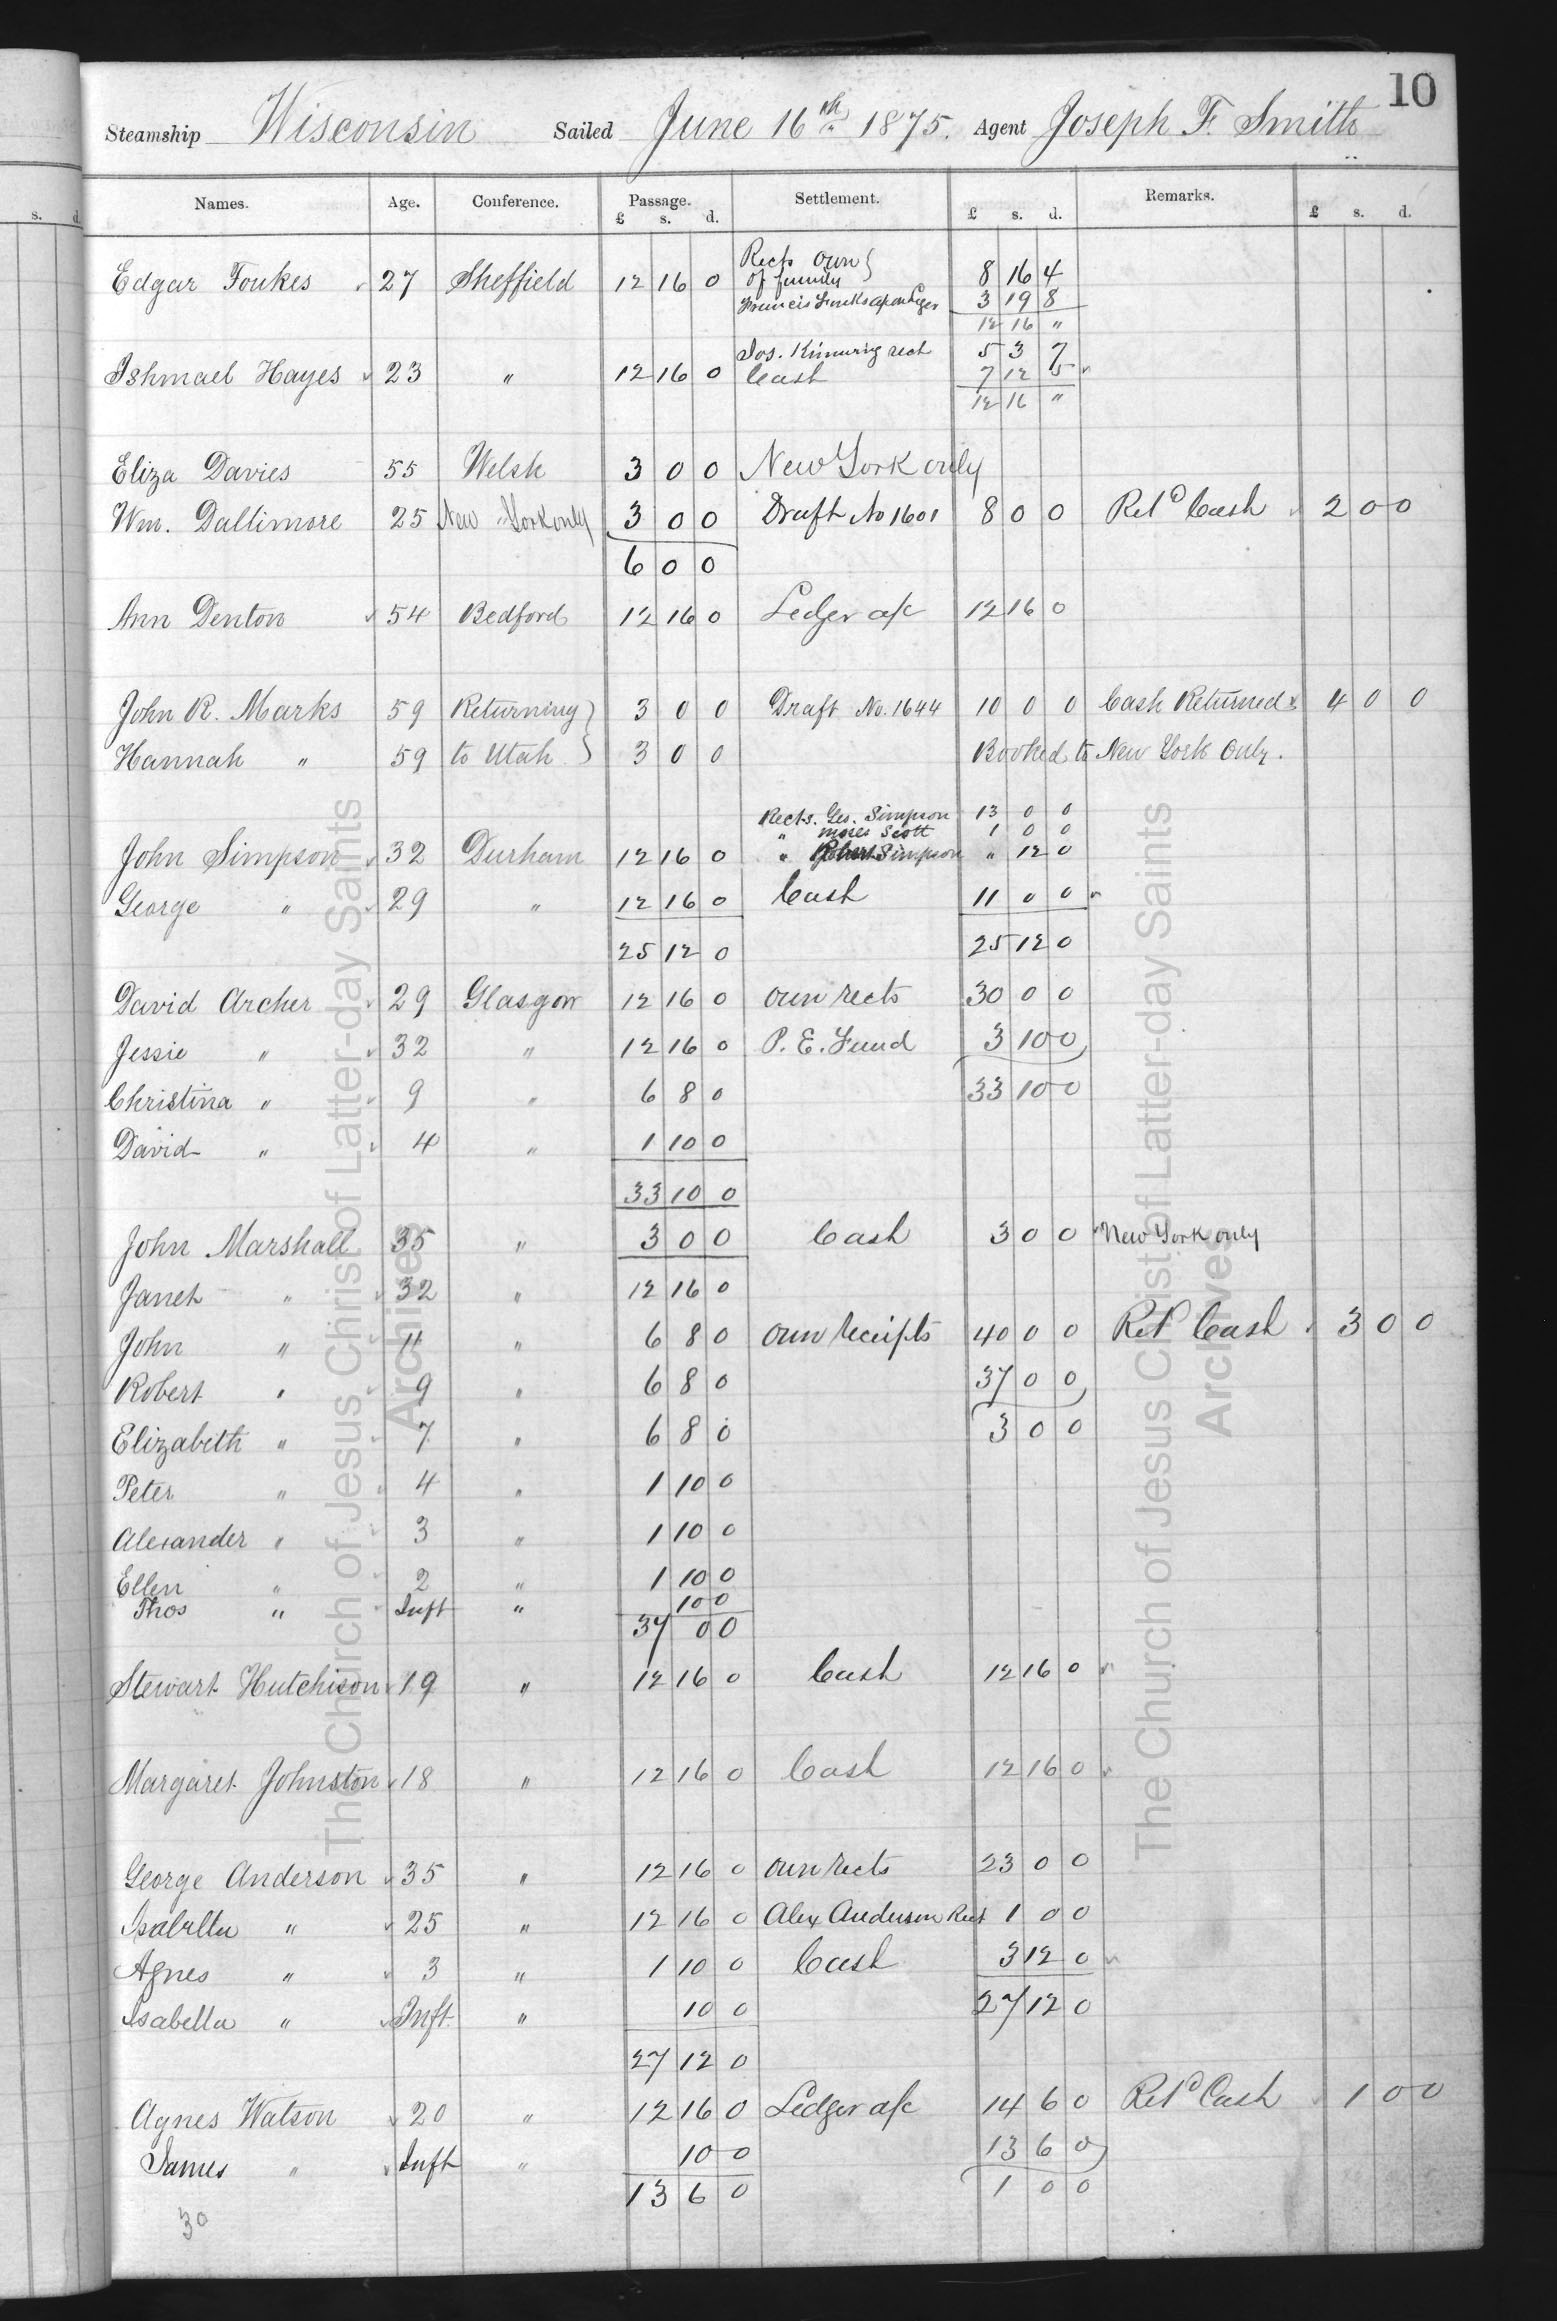 10
Steamship Wisconsin Sailed June 16th 1875. Agent Joseph F. Smith
Names. Age. Conference. Passage. Settlement. Remarks.
s. d. £ s. d. £ s. d. £ s. d.
Rects own }
Edgar Foukes 27 Sheffield 12 16 0 of family 8 16 4
Francis 3 19 8
12 16 "
Jos. rect 5 3 7
Ishmael Hayes 23 " 12 16 0 Cash 7 12 5
12 16 "
Eliza Davies 55 Welsh 3 0 0 New York only
Wm. Dallimore 25 New York only 3 0 0 Draft No 1601 8 0 0 Retd Cash 2 0 0
6 0 0
Ann Denton 54 Bedford 12 16 0 Ledger a/c 12 16 0
John R. Marks 59 Returning } 3 0 0 Draft No. 1644 10 0 0 Cash Returned 4 0 0
Hannah " 59 to Utah } 3 0 0 Booked to New York Only.
Rects. Geo. Simpson 13 0 0
" Moses Scott 1 0 0
John Simpson 32 Durham 12 16 0 " Simpson " 12 0
George " 29 " 12 16 0 Cash 11 0 0
25 12 0 25 12 0
David Archer 29 Glasgow 12 16 0 own rects 30 0 0
Jessie " 32 " 12 16 0 P. E. Fund 3 10 0
Christina " 9 " 6 8 0 33 10 0
David " 4 " 1 10 0
33 10 0
John Marshall 35 " 3 0 0 Cash 3 0 0 New York only
Janet " 32 " 12 16 0
John " 11 " 6 8 0 own receipts 40 0 0 Retd Cash 3 0 0
Robert " 9 " 6 8 0 37 0 0
Elizabeth " 7 " 6 8 0 3 0 0
Peter " 4 " 1 10 0
Alexander " 3 " 1 10 0
Ellen " 2 " 1 10 0
Thos " Inft " 10 0
37 0 0
Stewart Hutchison 19 " 12 16 0 Cash 12 16 0
Margaret Johnston 18 " 12 16 0 Cash 12 16 0
George Anderson 35 " 12 16 0 own rects 23 0 0
Isabella " 25 " 12 16 0 Alex Anderson Rect 1 0 0
Agnes " 3 " 1 10 0 Cash 3 12 0
Isabella " Inft. " 10 0 27 12 0
27 12 0
Agnes Watson 20 " 12 16 0 Ledger a/c 14 6 0 Retd Cash 1 0 0
James " Inft " 10 0 13 6 0
13 6 0 1 0 0
30
The Church of Jesus Christ of Latter-day Saints
Archives
The Church of Jesus Christ of Latter-day Saints
Archives